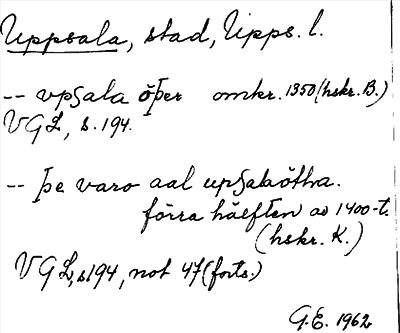 Uppsala, stad, Upps. l.
-- vpsala öþer omkr. 1350 (hskr. B.)
VGL, s. 194.
-- þe varo aal upsalaötha.
förra hälften av 1400-t.
(hskr. K.)
VGL, s194, not 47 (forts.)
G.E. 1962